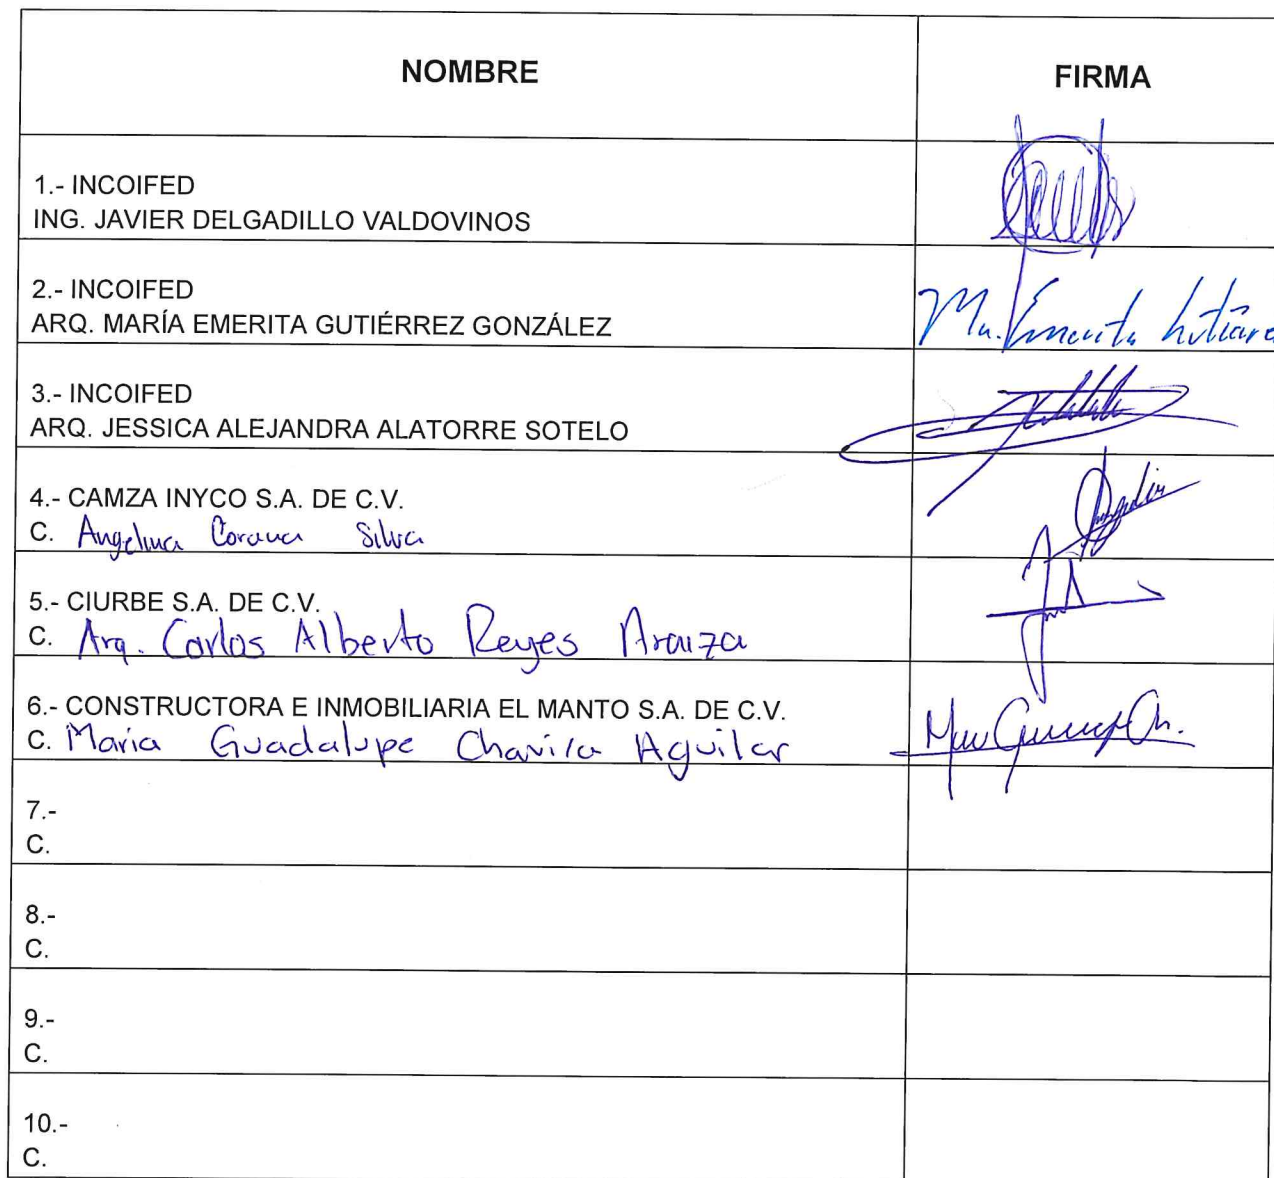 NOMBRE
FIRMA
1.- INCOIFED
ING. JAVIER DELGADILLO VALDOVINOS
2.- INCOIFED
ARQ. MARÍA EMERITA GUTIÉRREZ GONZÁLEZ
Ma. Emerita
3.- INCOIFED
ARQ. JESSICA ALEJANDRA ALATORRE SOTELO
4.- CAMZA INYCO S.A. DE C.V.
C. Angelina Corona Silva
5.- CIURBE S.A. DE C.V.
C. Arq. Carlos Alberto Reyes Arauza
6.- CONSTRUCTORA E INMOBILIARIA EL MANTO S.A. DE C.V.
C. Maria Guadalupe Chavira Aguilar
7.-
C.
8.-
C.
9.-
C.
10.-
C.